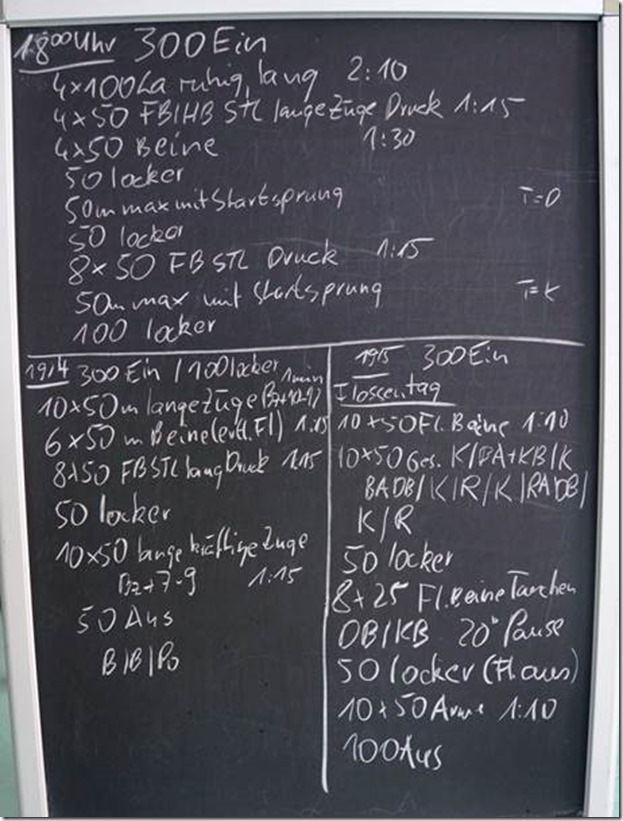 18°° Uhr 300 Ein
4x100 La ruhig, lang 2:10
4x50 FB/HB STL lange Züge Druck 1:15
4x50 Beine 1:30
50 locker
50m max mit Startsprung T=D
50 locker
8x50 FB STL Druck 1:15
50m max mit Startsprung T=K
100 locker
19/4 300 Ein / 100 locker
10x50m lange Züge 1min
6x50m Beine (evtl. Fl) 1:15
8x50 FB STL lang Druck 1:15
50 locker
10x50 lange kräftige Züge
Bz+7-9 1:15
50 Aus
B/B/Po
19/5 300 Ein
Flossentag
10x50 Fl. Beine 1:10
10x50 Ges. K/BA+KB/K
BADB/K/R/K/RADB/
K/R
50 locker
8x25 Fl. Beine Tauchen
DB/KB 20" Pause
50 locker (Fl aus)
10x50 Arme 1:10
100 Aus